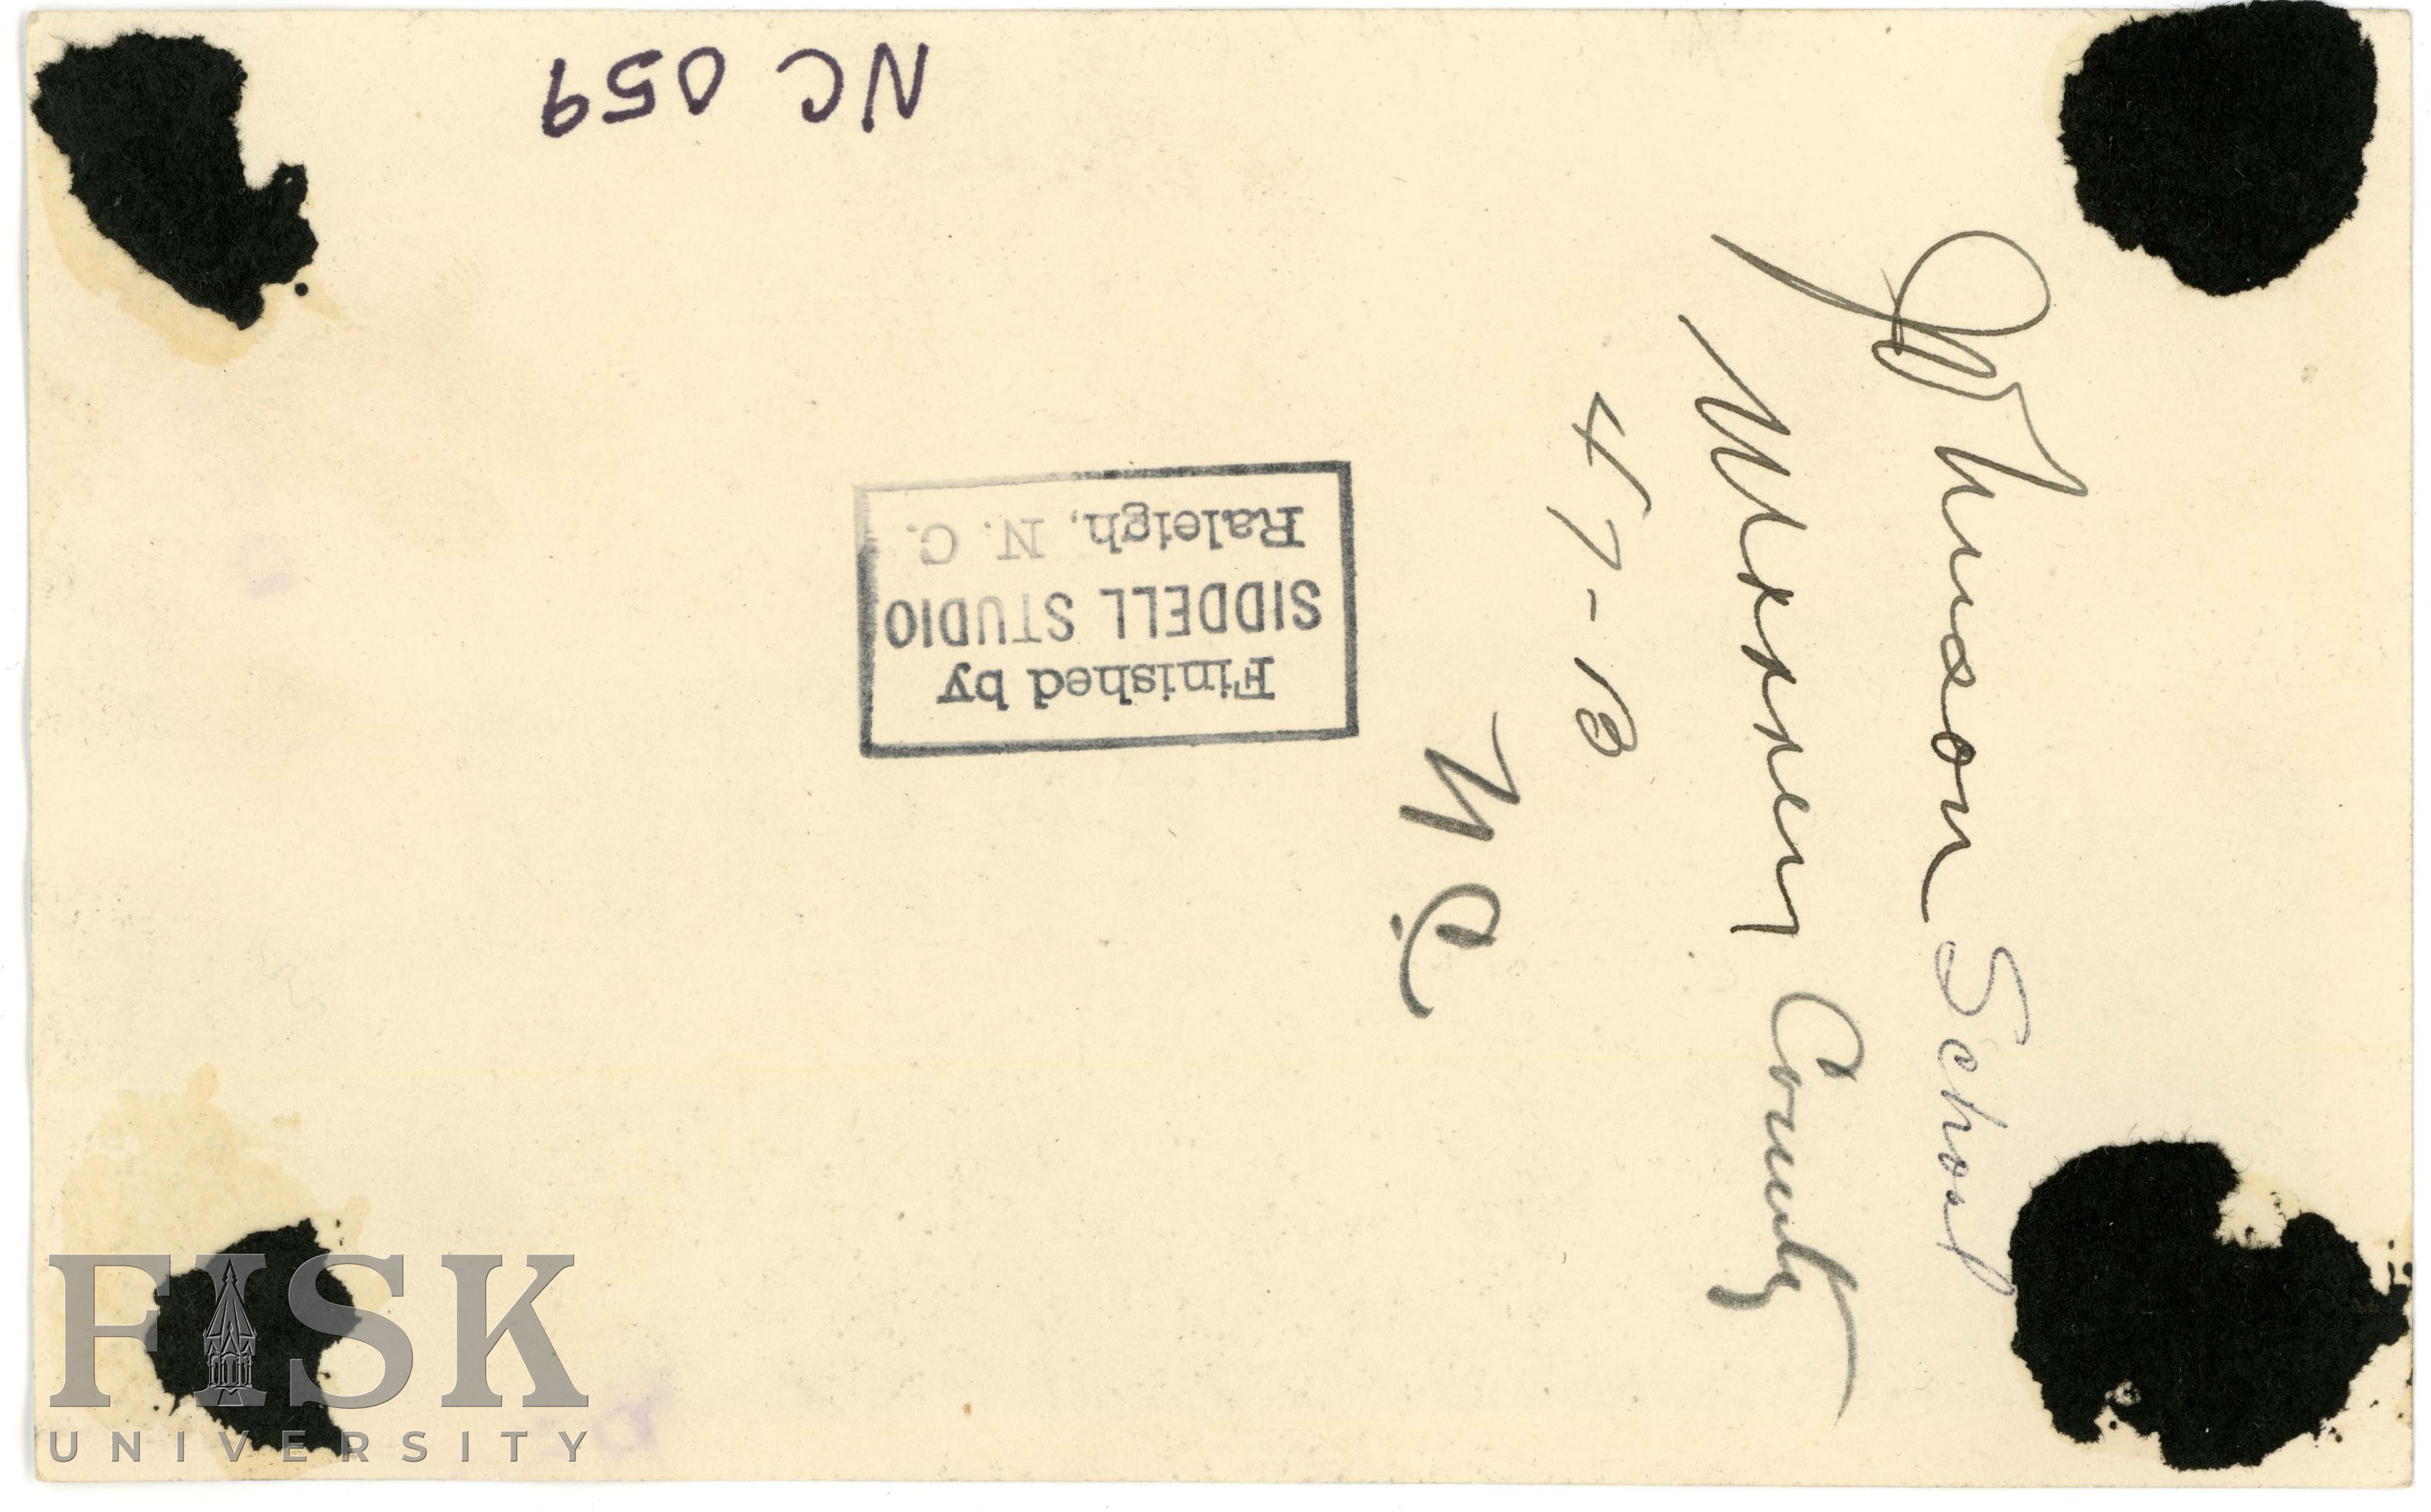 NC 059
Johnson School
Warren County
47-1B
N.C.
Finished by
SIDDELL STUDIO
Raleigh, N. C.
FISK
UNIVERSITY